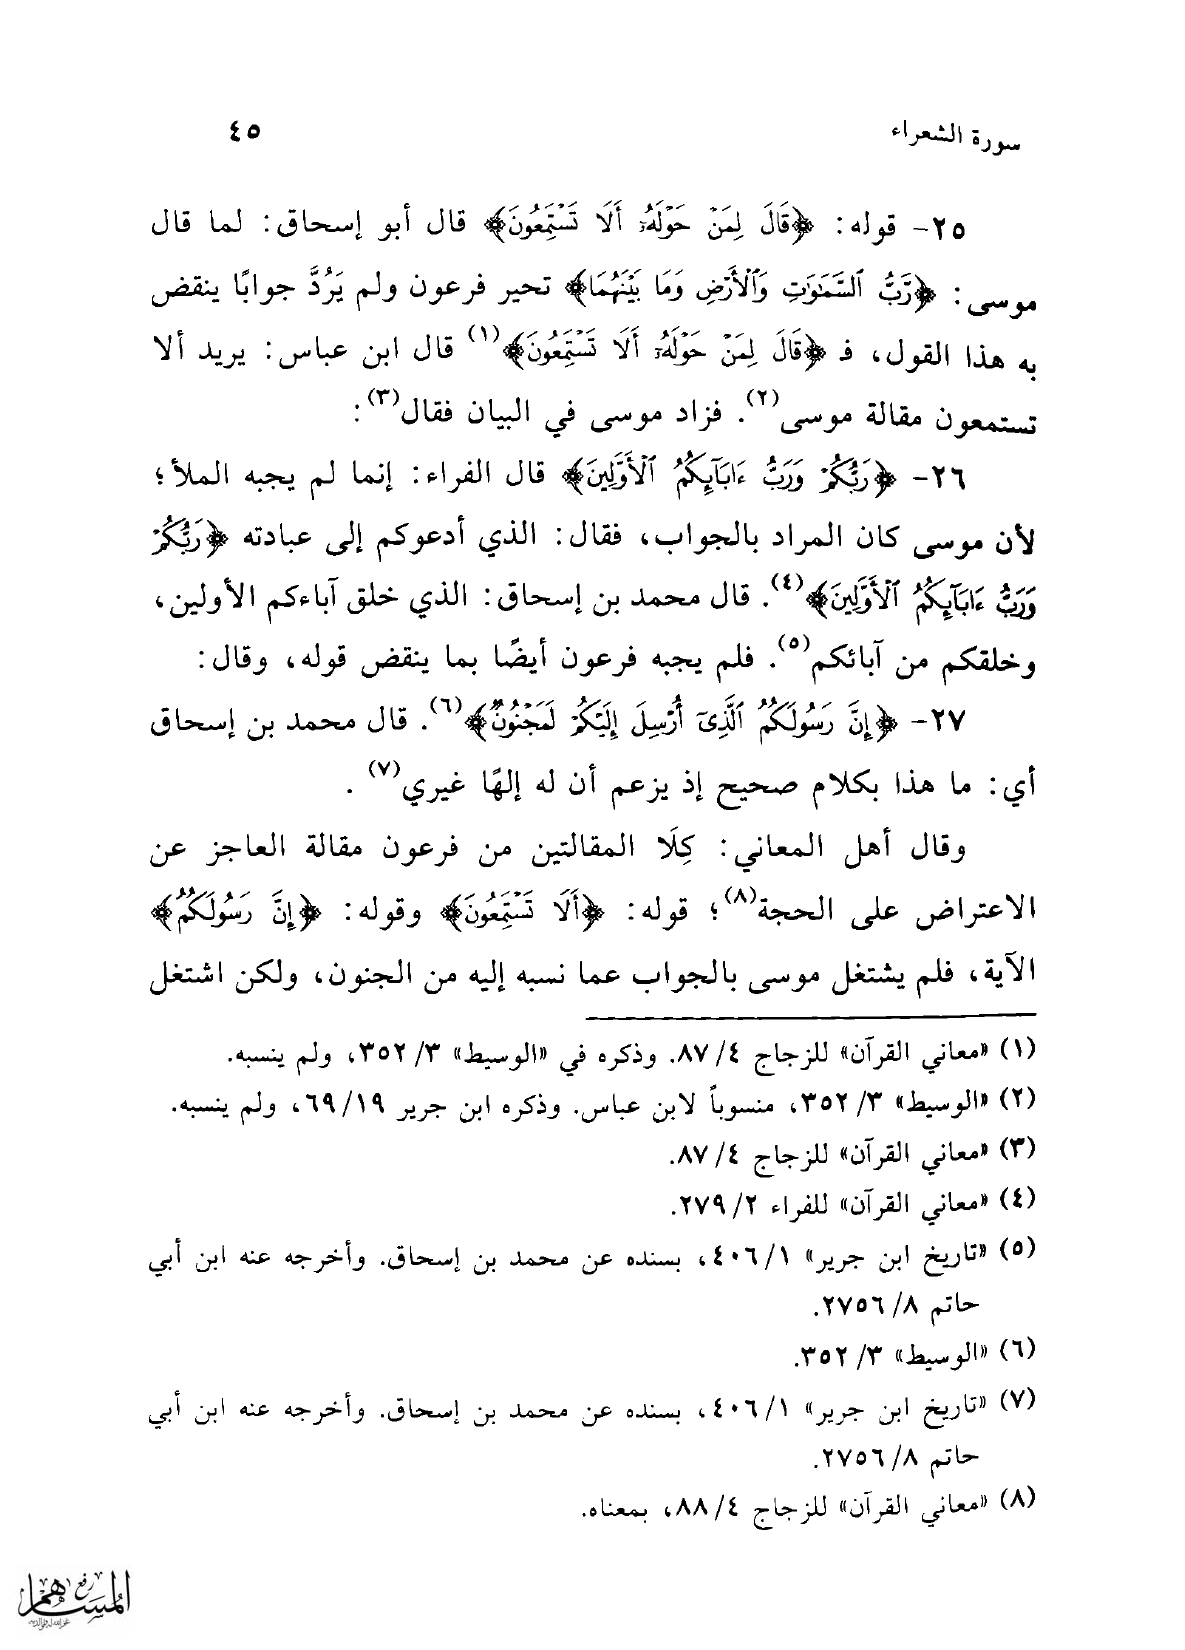 سورة الشعراء
٤٥
٢٥- قوله: ﴿قَالَ لِمَنْ حَوْلَهُۥٓ أَلَا تَسْتَمِعُونَ﴾ قال أبو إسحاق: لما قال
موسى: ﴿رَبُّ السَّمَٰوَٰتِ وَٱلْأَرْضِ وَمَا بَيْنَهُمَا﴾ تحير فرعون ولم يَرُدَّ جوابًا ينقض
به هذا القول، فـ ﴿قَالَ لِمَنْ حَوْلَهُۥٓ أَلَا تَسْتَمِعُونَ﴾(١) قال ابن عباس: يريد ألا
تستمعون مقالة موسى(٢). فزاد موسى في البيان فقال(٣):
٢٦- ﴿رَبُّكُمْ وَرَبُّ ءَابَآئِكُمُ ٱلْأَوَّلِينَ﴾ قال الفراء: إنما لم يجبه الملأ؛
لأن موسى كان المراد بالجواب، فقال: الذي أدعوكم إلى عبادته ﴿رَبُّكُمْ
وَرَبُّ ءَابَآئِكُمُ ٱلْأَوَّلِينَ﴾(٤). قال محمد بن إسحاق: الذي خلق آباءكم الأولين،
وخلقكم من آبائكم(٥). فلم يجبه فرعون أيضًا بما ينقض قوله، وقال:
٢٧- ﴿إِنَّ رَسُولَكُمُ ٱلَّذِىٓ أُرْسِلَ إِلَيْكُمْ لَمَجْنُونٌ﴾(٦). قال محمد بن إسحاق
أي: ما هذا بكلام صحيح إذ يزعم أن له إلهًا غيري(٧) .
وقال أهل المعاني: كِلَا المقالتين من فرعون مقالة العاجز عن
الاعتراض على الحجة(٨)؛ قوله: ﴿أَلَا تَسْتَمِعُونَ﴾ وقوله: ﴿إِنَّ رَسُولَكُمُ﴾
الآية، فلم يشتغل موسى بالجواب عما نسبه إليه من الجنون، ولكن اشتغل
(١) «معاني القرآن» للزجاج ٤/ ٨٧. وذكره في «الوسيط» ٣/ ٣٥٢، ولم ينسبه.
(٢) «الوسيط» ٣/ ٣٥٢، منسوباً لابن عباس. وذكره ابن جرير ١٩/ ٦٩، ولم ينسبه.
(٣) «معاني القرآن» للزجاج ٤/ ٨٧.
(٤) «معاني القرآن» للفراء ٢/ ٢٧٩.
(٥) «تاريخ ابن جرير» ١/ ٤٠٦، بسنده عن محمد بن إسحاق. وأخرجه عنه ابن أبي
حاتم ٨/ ٢٧٥٦.
(٦) «الوسيط» ٣/ ٣٥٢.
(٧) «تاريخ ابن جرير» ١/ ٤٠٦، بسنده عن محمد بن إسحاق. وأخرجه عنه ابن أبي
حاتم ٨/ ٢٧٥٦.
(٨) «معاني القرآن» للزجاج ٤/ ٨٨، بمعناه.